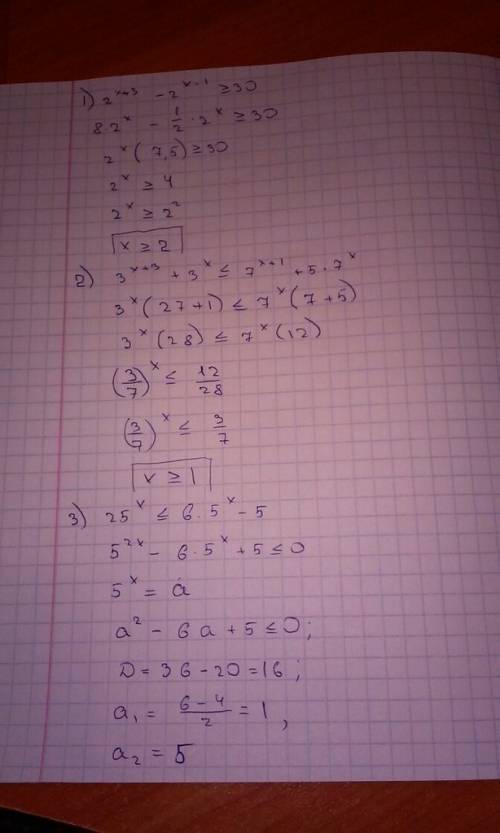 1) 2^{x+3} - 2^{x-1} ≥ 30
8·2^x - 1/2 · 2^x ≥ 30
2^x ( 7,5) ≥ 30
2^x ≥ 4
2^x ≥ 2^2
x ≥ 2
2) 3^{x+3} + 3^x ≤ 7^{x+1} + 5·7^x
3^x (27+1) ≤ 7^x (7+5)
3^x (28) ≤ 7^x (12)
(3/7)^x ≤ 12/28
(3/7)^x ≤ 3/7
x ≥ 1
3) 25^x ≤ 6·5^x - 5
5^{2x} - 6·5^x + 5 ≤ 0
5^x = a
a^2 - 6a + 5 ≤ 0;
D = 36 - 20 = 16;
a_1 = (6-4)/2 = 1,
a_2 = 5